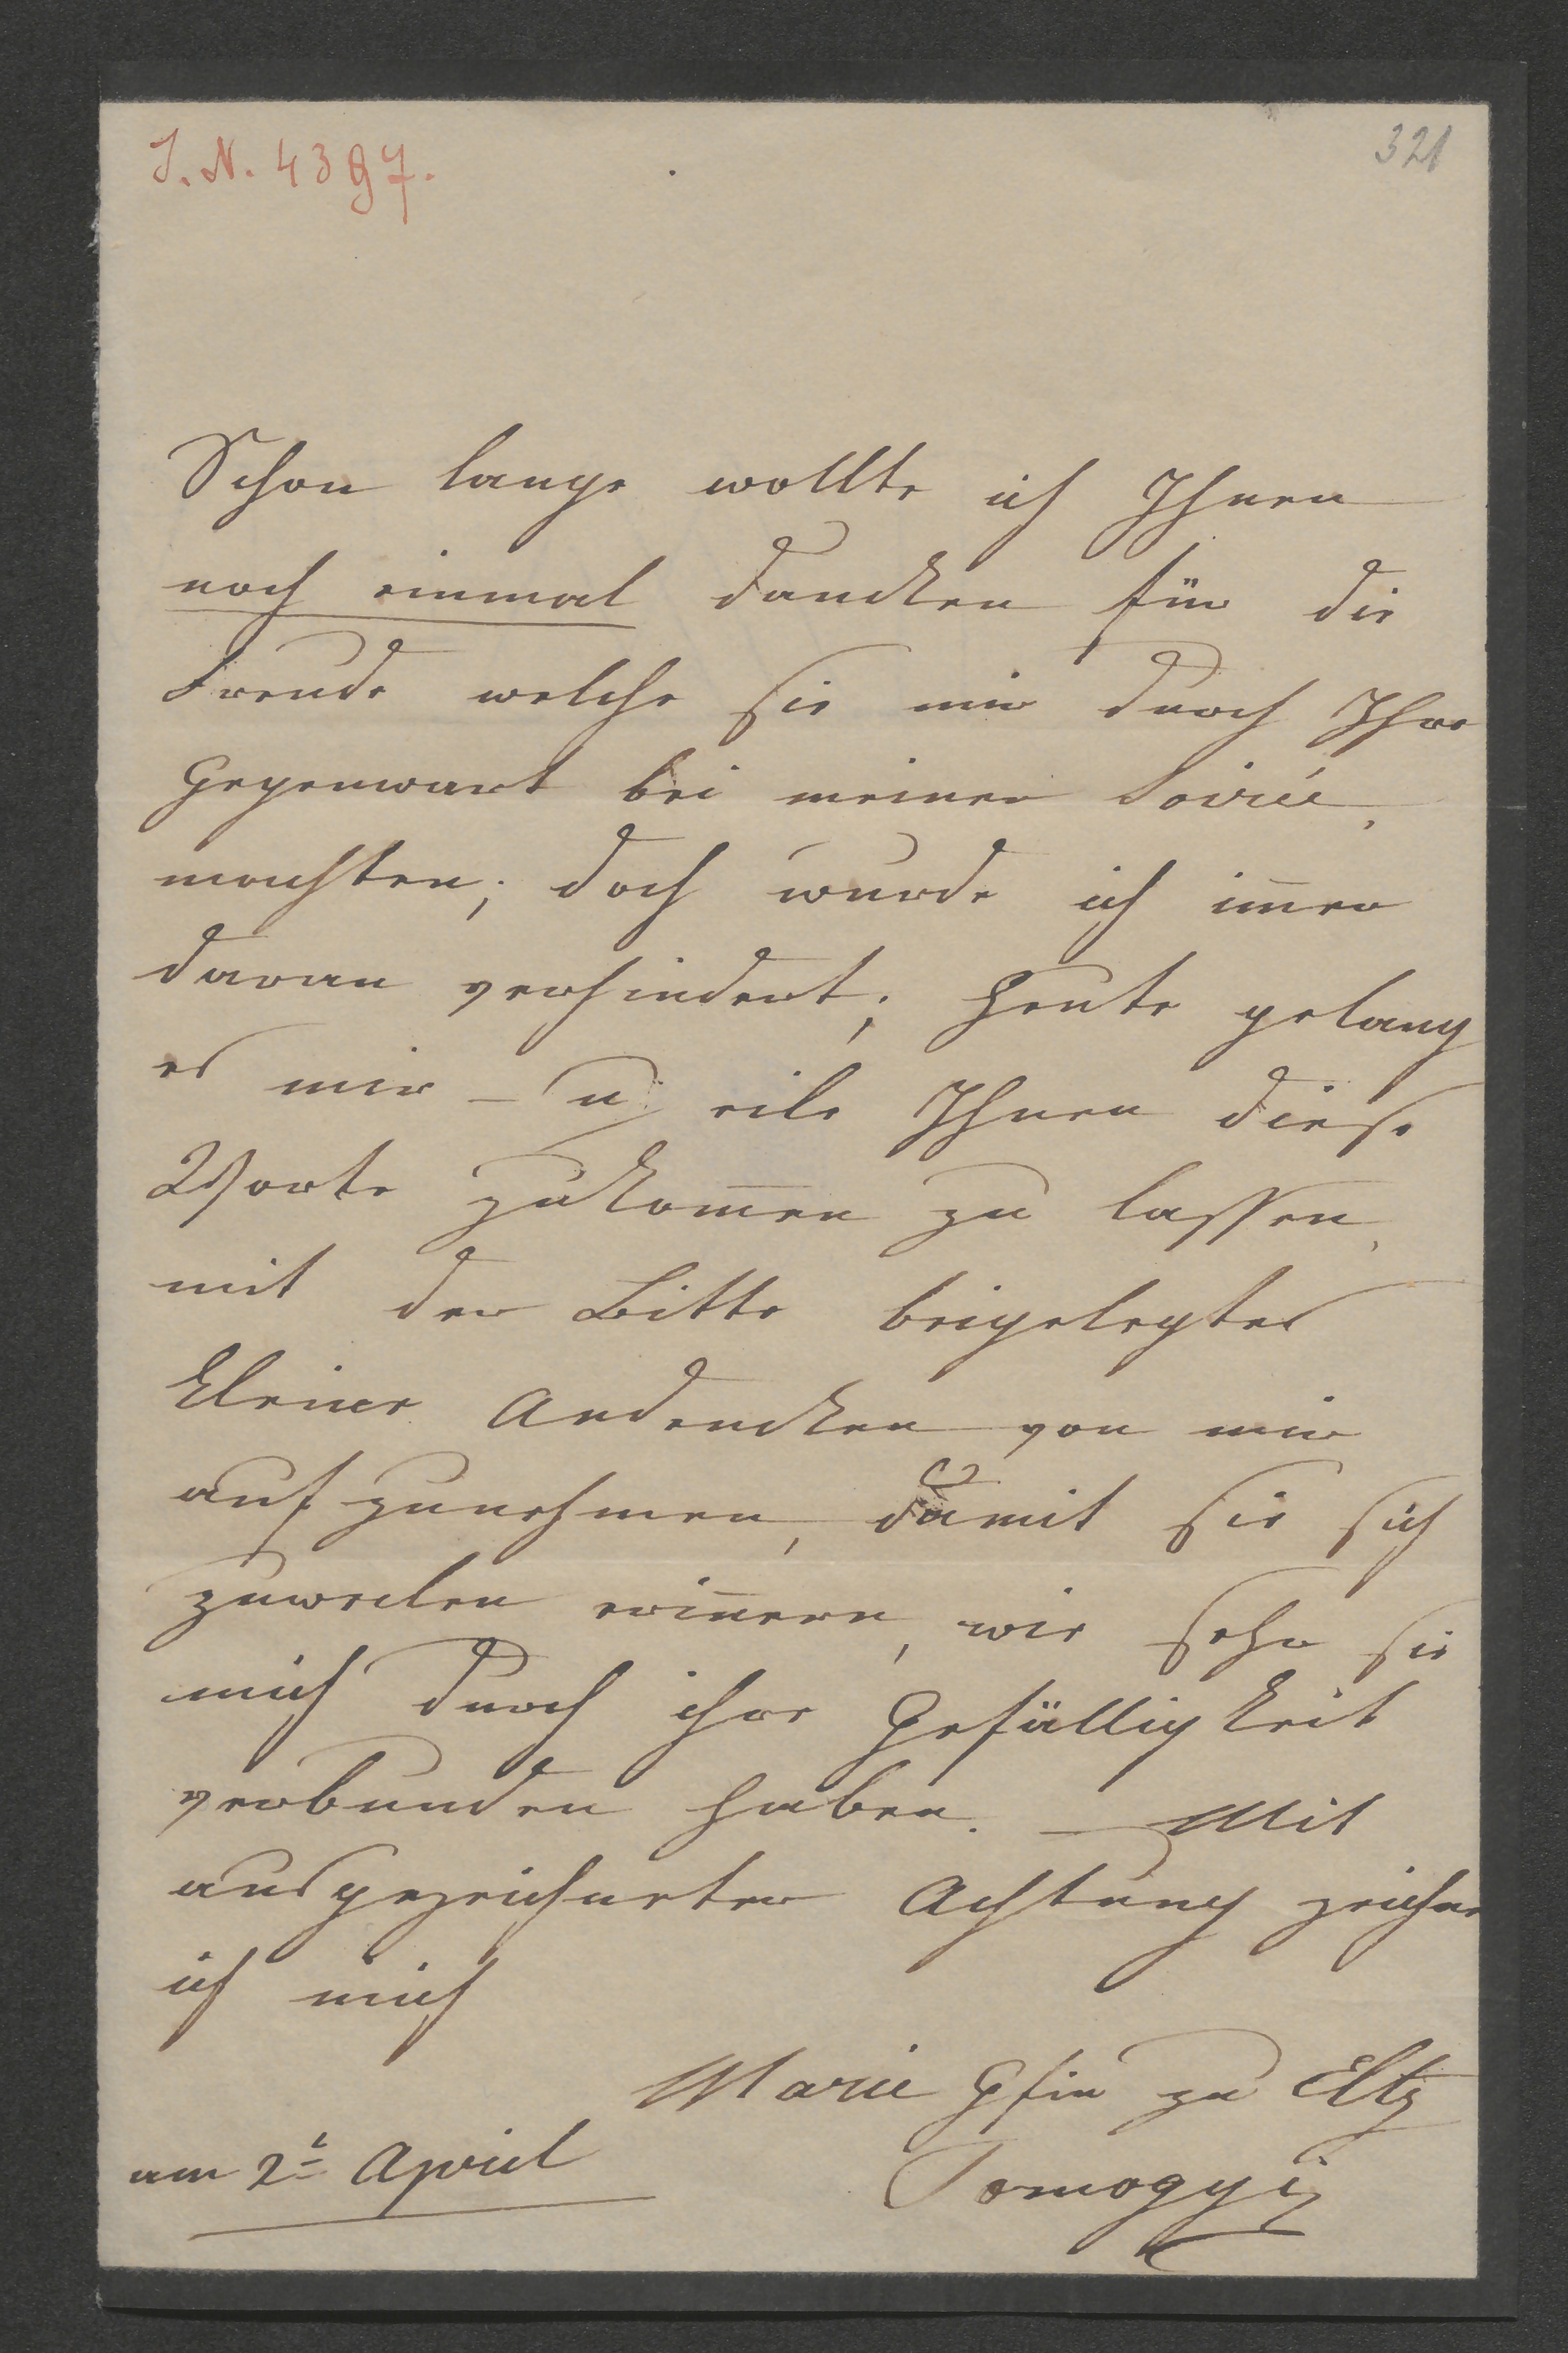 J. N. 4397.
321
Schon lange wollte ich Ihnen
noch einmal dancken für die
Freude welche sie mir durch Ihre
Gegenwart bei meiner Soirée,
machten; doch wurde ich im̄er
daran verhindert; heute gelang
es mir – u eile Ihnen diese
Worte zukom̄en zu lassen,
mit der Bitte beigelegtes
kleine Andencken von mir
aufzunehmen, damit sie sich
zuweilen erin̄ern, wie sehr sie
mich durch ihre Gefälligkeit
verbunden haben. – Mit
ausgezeichneter Achtung zeichne
ich mich
Marie Gfin zu Eltz
am 2t April
Somogyi